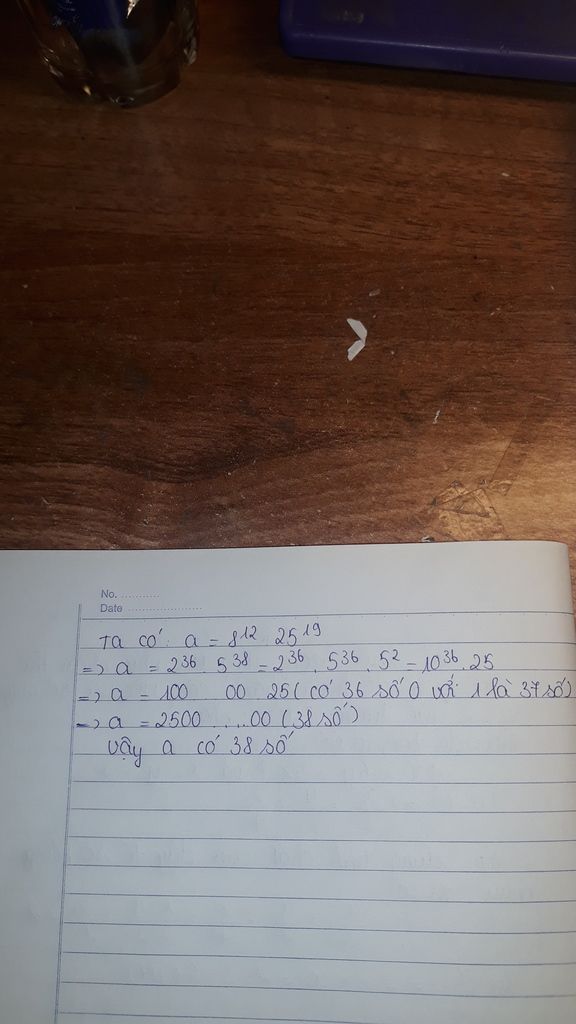 No. ...........
Date ......................
Ta có: a = 8¹² . 25¹⁹
=> a = 2³⁶ . 5³⁸ = 2³⁶ . 5³⁶ . 5² = 10³⁶ . 25
=> a = 100 00 . 25 ( có 36 số 0 với 1 là 37 số)
=> a = 2500 .....00 ( 38 số )
Vậy a có 38 số